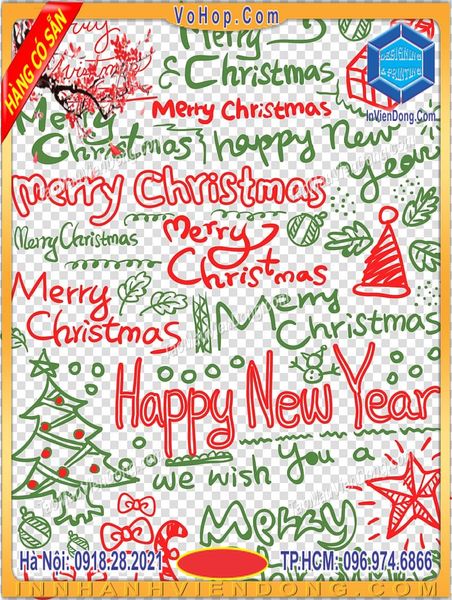 VoHop.Com
HÀNG CÓ SẴN
Merry
& Christmas
DESIGNING
& PRINTING
InVienDong.Com
Merry Christmas
Merry
Christmas
happy New
year
merry Christmas
Merry Christmas
Merry
Christmas
Merry
Christmas
Merry
Christmas
Happy New Year
we wish you a
Merry
Hà Nội: 0918.28.2021
TP.HCM: 096.974.6866
INNHANHVIENDONG.COM